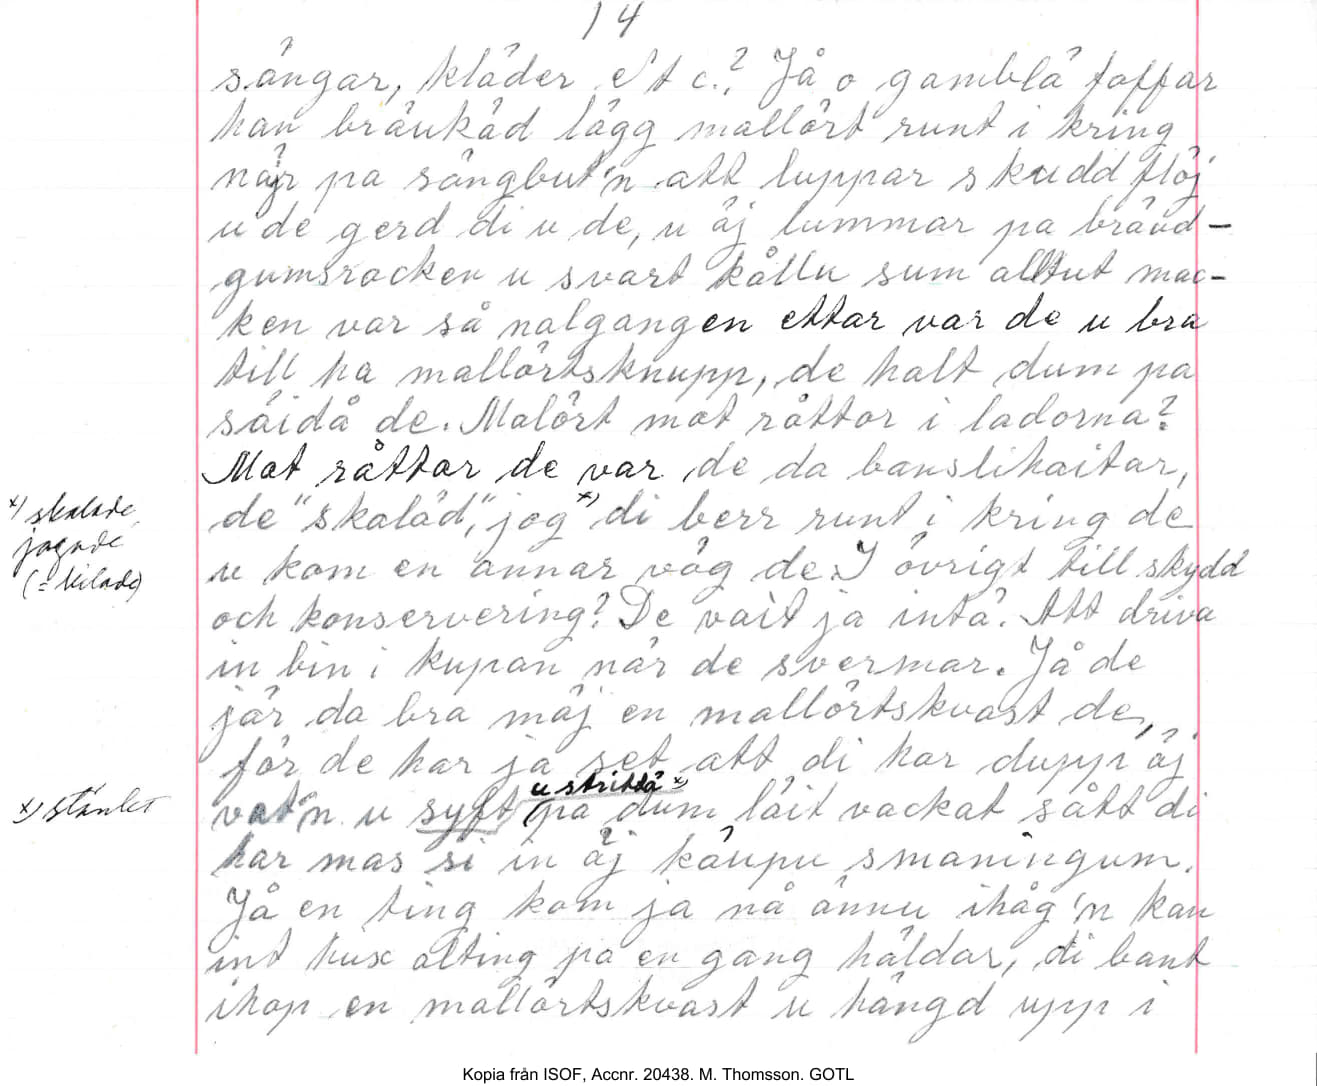 14
sängar, kläder etc.? Jå o gamblä foffar
han bräukäd lägg mallört runt i kring
när pa sängbut'n att luppar skudd flöj
u de gerd di u de, u äj lummar pa bräud-
gumsrocken u svart kållu sum alltut mac-
ken var så nalgangen ettar var de u bra
till ha mallörtsknupp, de halt dum pa
säidå de. Malört mot råttor i ladorna?
Mot råttar de var de da banslihaitar,
de "skaläd", jog" x) di berr runt i kring de
x) skalade
jagade
(= kilade)
u kom en annar väg de. I övrigt till skydd
och konservering? De vait ja intä. Att driva
in bin i kupan när de svermar. Jå de
jär da bra mäj en mallörtskvast de,
för de har ja set att di har duppi äj
u strittä x)
vat'n u syft pa dum läit vackat sått di
x) stänket
har mas si in äj käupu smaningum.
Jå en ting kom ja nå ännu ihåg 'n kan
int kux alting pa en gang häldar, di bant
ihop en mallörtskvast u hängd upp i
Kopia från ISOF, Accnr. 20438. M. Thomsson. GOTL